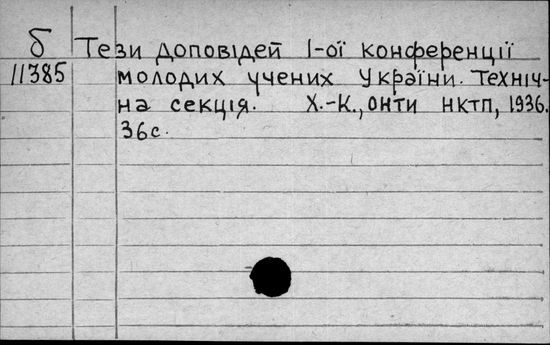 б Тези доповідей І-ої конференції
11385 молодих учених України. Техніч-
на секція. Х.-К., ОНТИ НКТП, 1936.
36с.